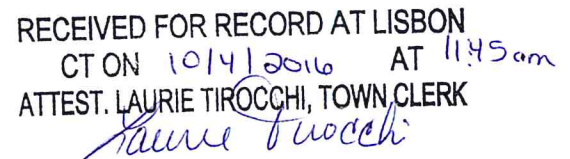 RECEIVED FOR RECORD AT LISBON
CT ON 10/4/2016 AT 11:45am
ATTEST. LAURIE TIROCCHI, TOWN CLERK
Laurie Tirocchi